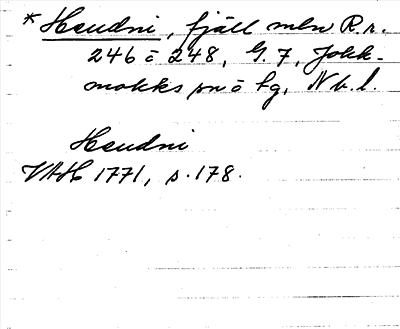 * Heudni, fjäll mln R.r.
246 o 248, G. 7, Jokk-
mokks sn o tg, Nb. l.
Heudni
VAH 1771, s. 178.